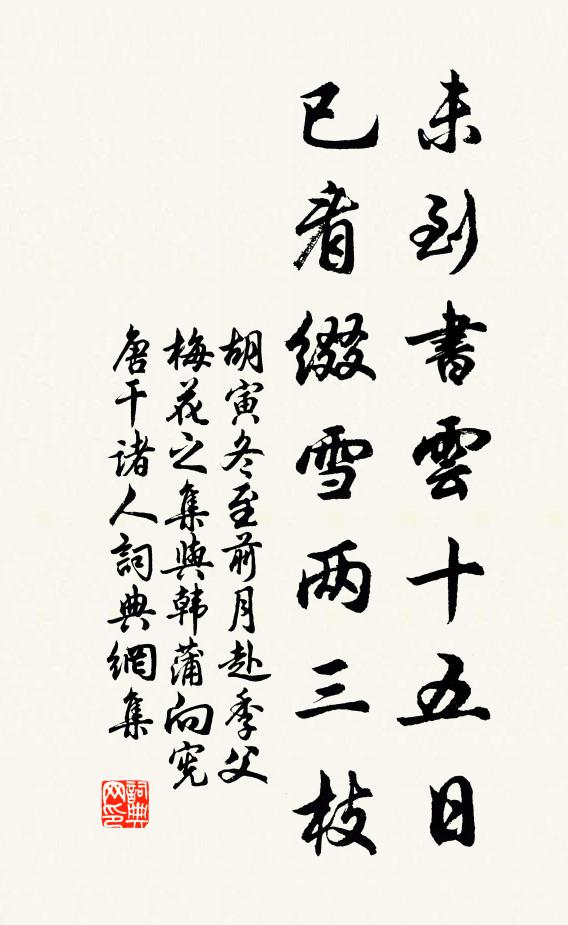 未到書雲十五日
已看綴雪两三枝
胡寅冬至前月赴季父
梅花之集與韩蒲向宪
唐干诸人詞典網集
詞典网印